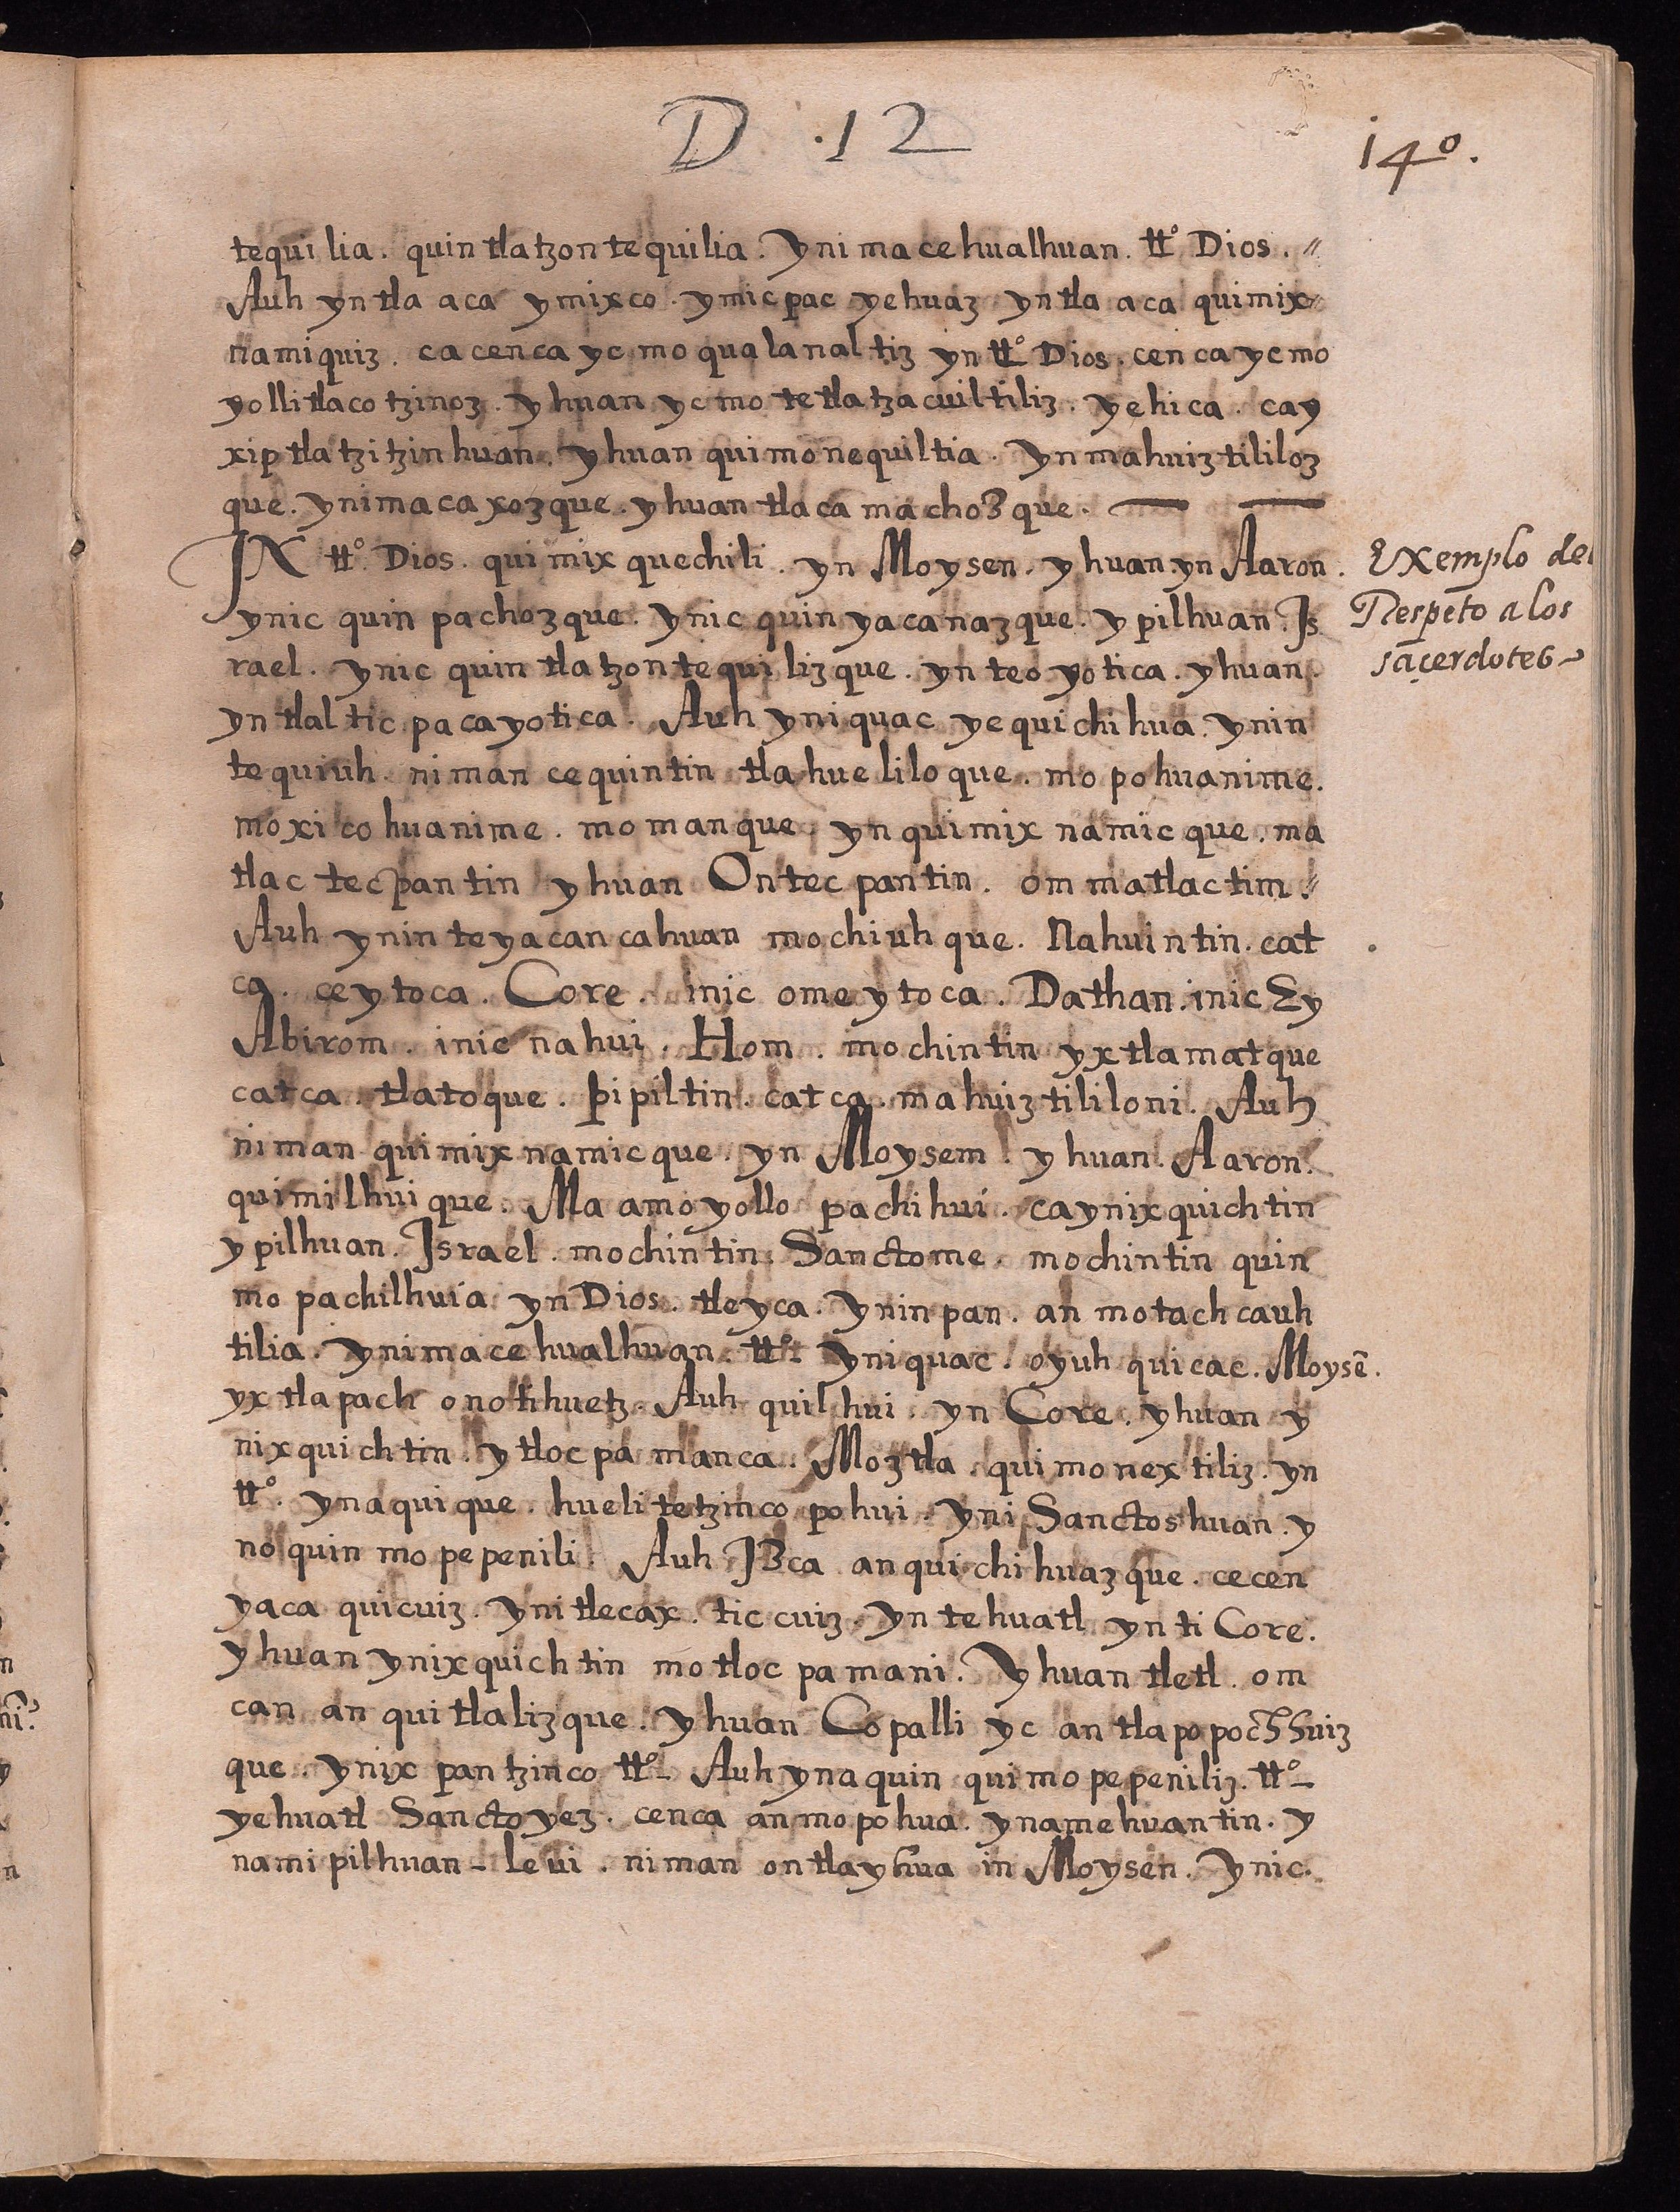 D .12
140.
tequilia. quin tlatzontequilia. Yni macehualhuan. tt° Dios. //
Auh yntla aca ymixco. ymicpac yehuaz yntla aca quimix//
namiquiz. ca cenca yc mo qualanaltiz yn tt° Dios. cenca yc mo
yollitlacotzinoz. yhuan yc mo tetlatzacuiltiliz. yehica. cay
xiptlatzitzinhuan. yhuan quimonequiltia. Ynmahuiztililoz
que. ynimacaxozque. yhuan tlacamachozque.
IN tt° Dios. quimixquechili. yn Moysen. yhuan yn Aaron.
Exemplo del
Respecto a los
saçerdotes
ynic quin pachozque. ynic quin yacanazque. ypilhuan. Is
rael. ynic quin tlatzontequilizque. yn teoyotica. yhuan.
yn tlalticpacayotica. Auh yniquac ye quichihua. ynin
tequiuh. niman cequintin tlahueliloque. mopohuanime.
moxicohuanime. momanque. yn quimixnamicque. ma
tlactecpantin yhuan Ontecpantin. ommatlactim. //
Auh ynin teyacancahuan mochiuhque. Nahuintin. cat
ca. ce ytoca. Core. inic ome ytoca. Dathan. inic Ey
Abirom. inic nahui. Hom. mochintin yxtlamatque
catca. tlatoque. pipiltin. catca. mahuiztililoni. Auh
niman quimixnamicque. yn Moysem. yhuan. Aaron.
quimilhuique. Ma amoyollo pachihui. ca ynixquichtin
ypilhuan. Israel. mochintin. Sanctome. mochintin quin
mo pachilhuia yn Dios. tleyca. Ynin pan. an motachcauh
tilia. ynimacehualhuan. tt°. yniquac. oyuh quicac. Moysē.
yxtlapach onotihuetz. Auh quilhui. yn Core. yhuan y
nixquichtin. ytlocpa manca. Moztla. quimonextiliz. yn
tt°. ynaquique. huel itetzinco pohui. yni Sanctoshuan. y
no quin mo pepenili. Auh Izca anquichihuazque. cecen
yaca quicuiz. ynitlecax. ticcuiz. yn tehuatl yn ti Core.
yhuan ynixquichtin motlocpa mani. Yhuan tletl. om
can anquitlalizque. yhuan Copalli yc antlapopochhuiz
que. ynixpantzinco tt°. Auh ynaquin quimopepeniliz. tt°.
yehuatl Sancto yez. cenca anmopohua. ynamehuantin. y
namipilhuan - Leui. niman ontlayhua in Moysen. Ynic.